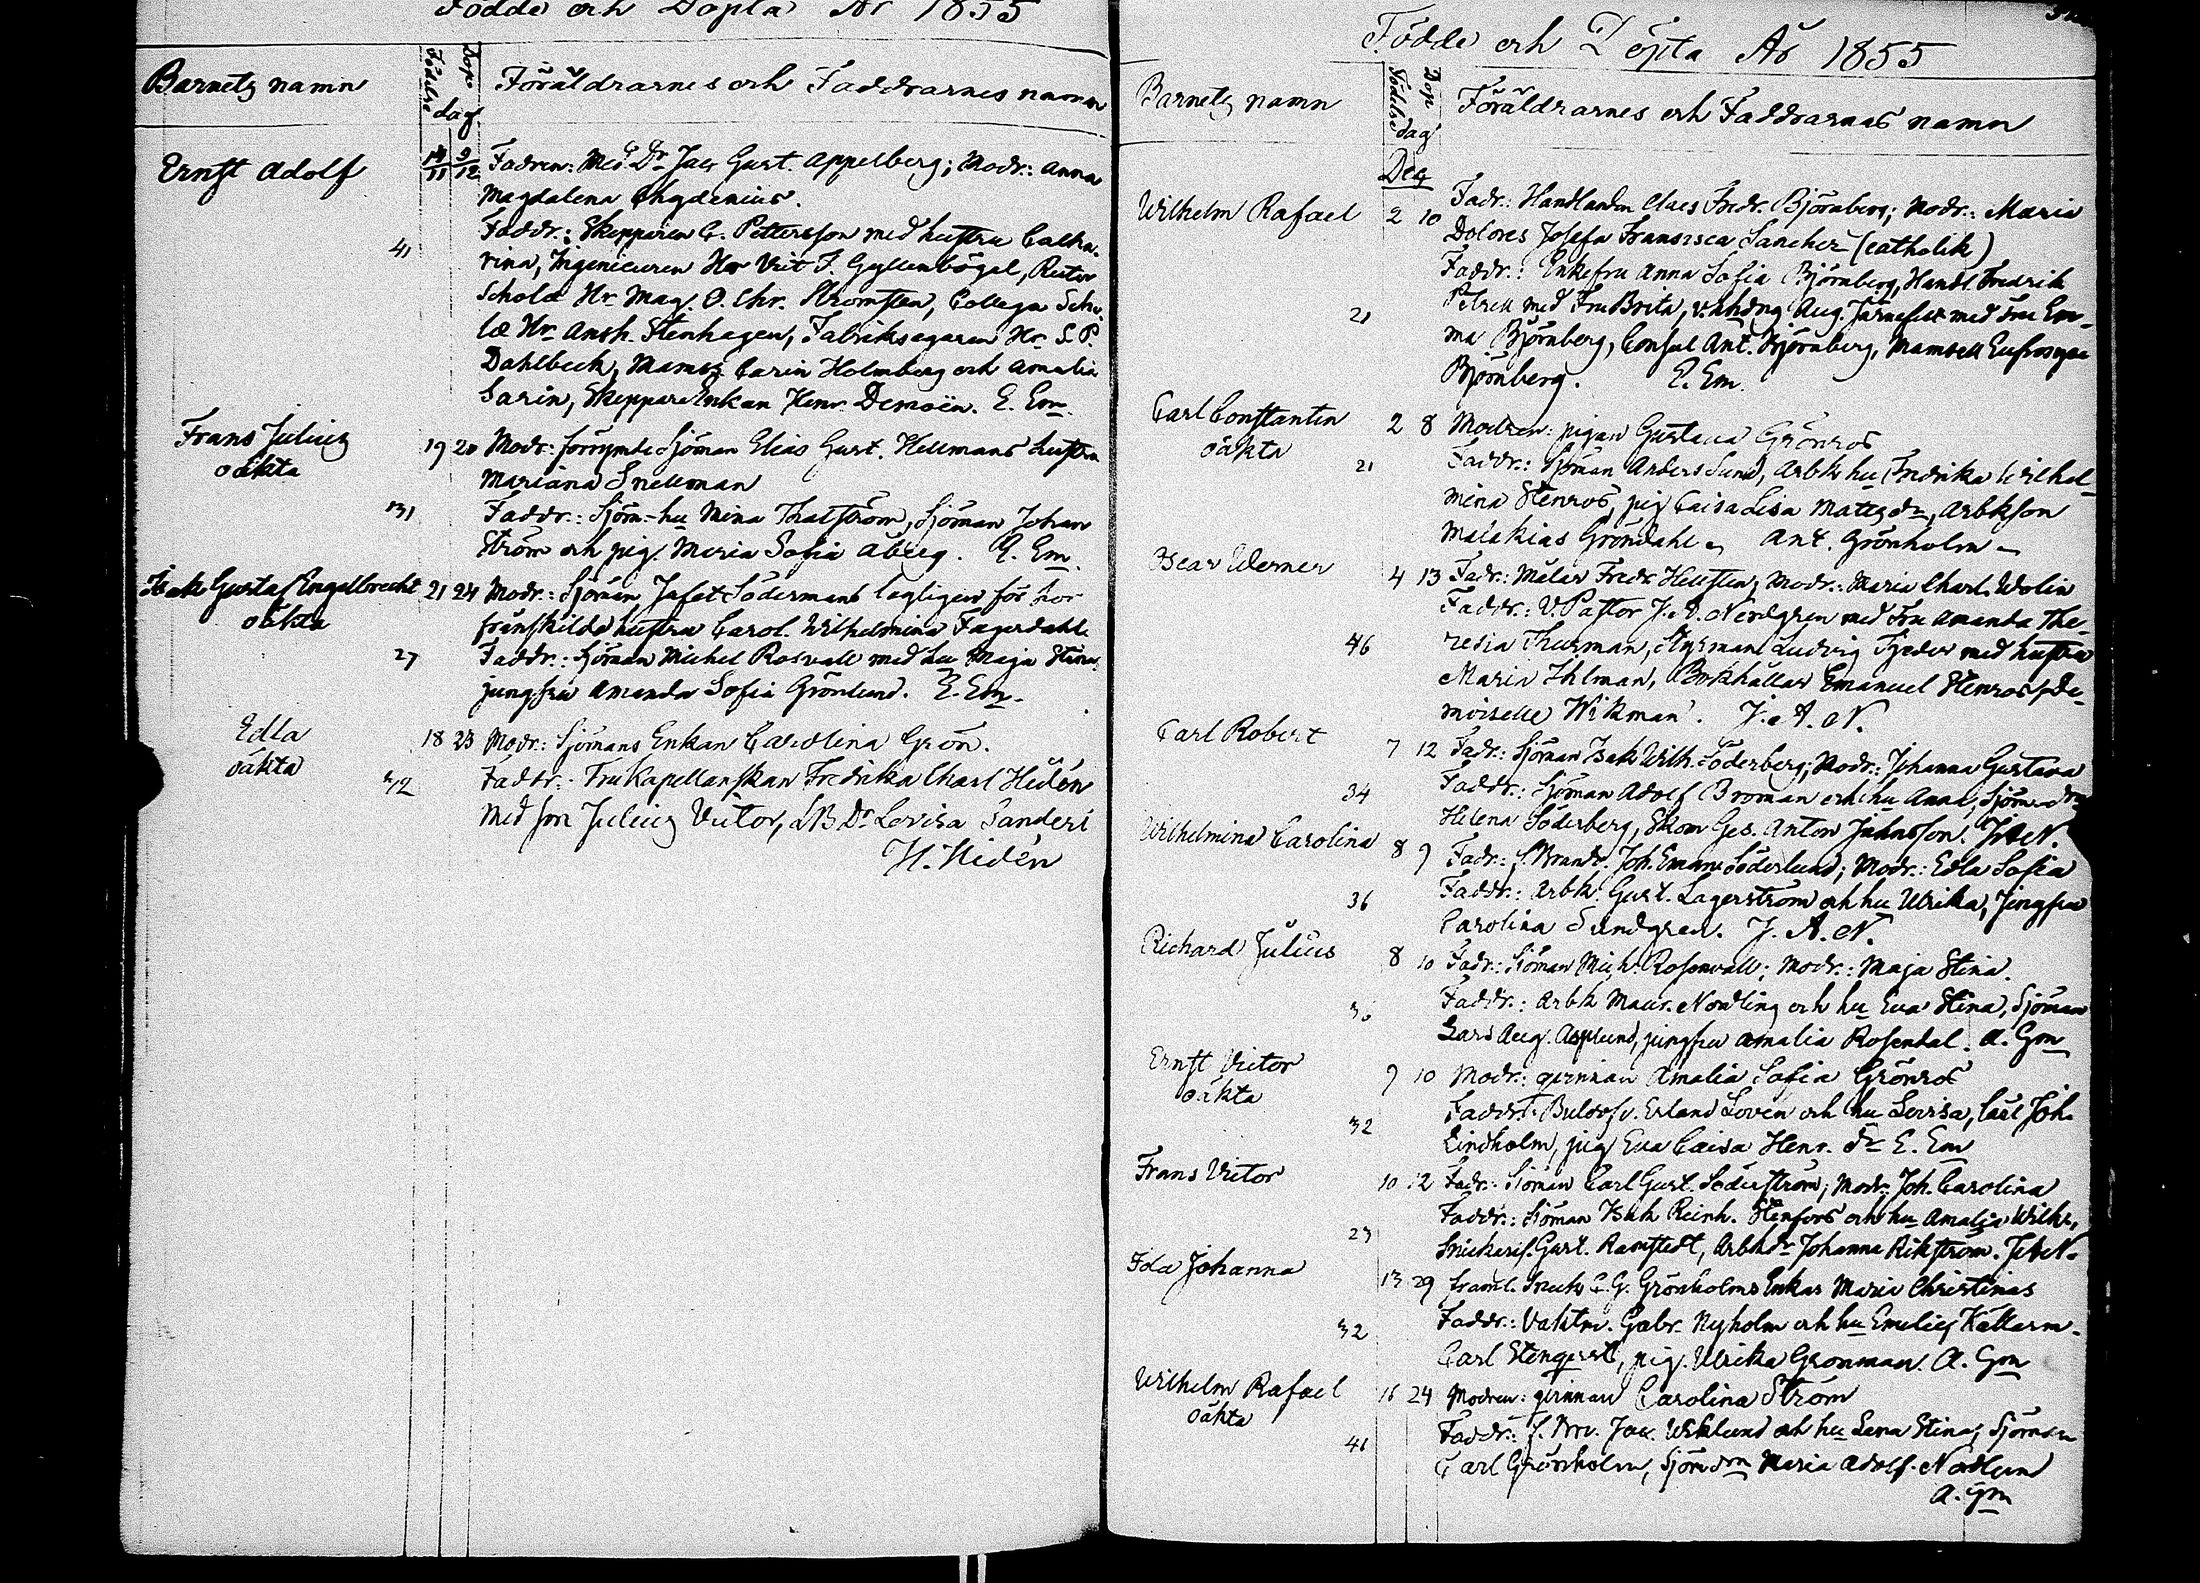 Födde och Döpta År 1855
Barnets namn
Födelse
Dop
dag
Föräldrarnes och Faddrarnes namn
Ernst Adolf
14/11 9/12 Fadren: Med. Dr Jac. Gust. Appelberg; Modr: Anna
Magdalena Chydenius.
Faddr.: Skepparen C. Pettersson med hustru Catha-
41
rina, Ingenieuren Herr Vict F. Gyllenbögel, Rector
Scholæ Hr Mag. O. Chr. Strömsten, Collega Scho-
læ Hr Ansh. Stenhagen, Fabriksegaren Hr S. P.
Dahlbeck, Mams Carin Holmberg och Amalia
Sarin, Skeppare Enkan Henr. Demoën. E. Em.
Frans Julius
oäkta
19 20 Modr: förrymde Sjöman Elias Gust. Hellmans hustru
Mariana Snellman
131
Faddr.: Sjöm-hu Mina Thalström, Sjöman Johan
Ström och pig. Maria Sofia Åberg. E. Em.
Isak Gustaf Engelbrecht
oäkta
21 24 Modr.: Sjöman Jafet Södermans lagligen för hor
frånskilde hustru Carol. Wilhelmina Fagerdahl
27
Faddr.: Sjöman Michel Rosvall med hu Maja Stina
jungfru Amanda Sofia Grönlund. E. Em.
Edla
oäkta
18 23 Modr: Sjömans Enkan Carolina Grön.
32
Faddr.: Fru Kapellanskan Fredrika Charl Hidén
med son Julius Victor, Dr Lovisa Sanders
H. Hidén
Födde och Döpta År 1855
Barnets namn
Födelse
Dop
dag
Föräldrarnes och Faddrarnas namn
Dec
Wilhelm Rafael
2 10 Fadr.: Handlanden Claes Fredr. Björnberg; Modr.: Maria
Dolores Josefa Fransisca Sanchez (catholik)
Faddr.: Enkefru Anna Sofia Björnberg, Handl. Fredrik
21
Petrell med Fru Brita, Aug. Järnefelt med Fru Em-
ma Björnberg, Consul Ant. Björnberg, Mamsell Eufrosyne
Björnberg. E. Em.
Carl Constantin
oäkta
2 8 Modren: pigan Gustava Grönros
21
Faddr.: Sjöman Anders Sund, Arbk hu Fredrika Wilhel-
mina Stenros, pig Caisa Lisa Matts dr, Arbkson
Malakias Gröndahl Ant. Grönholm
Oscar Werner
4 13 Fadr: Målar Fredr Hellsten; Modr.: Maria Charl. Wolin
Faddr.: V. Pastor J. A. Nordgren med Fru Amanda The-
46
resia Thurman, Styrman Ludvig Fjeder med hustru
Maria Ihlman, Bokhållar Emanuel Stenros, De-
moiselle Wikman. J. A. N.
Carl Robert
7 12 Fadr: Sjöman Isak Wilh. Söderberg; Modr.: Johanna Gustava
34
Faddr.: Sjöman Adolf Broman och hu Anna, Sjöm-dr
Helena Söderberg, Skom Ges. Anton Juhnsson. J. A. N.
Wilhelmina Carolina
8 9 Fadr.: f. Brandv. Joh. Eman. Söderlund; Modr.: Edla Sofia
36
Faddr.: Arbk. Gust. Lagerström och hu Ulrika, Jungfru
Carolina Sundgren. J. A. N.
Richard Julius
8 10 Fadr: Sjöman Mich. Rosenvall; Modr.: Maja Stina.
36
Faddr.: Arbk Maur. Nordling och hu Eva Stina, Sjöman
Lars Aug. Asplund, jungfru Amalia Rosendal. A. Gm
Ernst Victor
oäkta
9 10 Modr: qvinnan Amalia Sofia Grönros
32
Faddr.: Erland Lovén och hu Lovisa, Carl Joh.
Lindholm, pig Eva Caisa Henr. dr E. Em
Frans Victor
10 12 Fadr: Sjöman Carl Gust. Söderström; Modr: Joh. Carolina
23
Faddr.: Sjöman Isak Reinh. Stenfors och hu Amalia Wilh.,
Snickarif. Gust. Ramstedt, Arbkdr Johanna Rikström. J. A. N.
Ida Johanna
13 29 framl. Snick C. G. Grönholms Enkas Maria Christinas
32
Faddr.: Vaktm. Gabr. Nyholm och hu Emelie, Källarm.
Carl Stenqvist, pig. Ulrika Gronman. A. Gm
Wilhelm Rafael
oäkta
16 24 Modren: qvinnan Carolina Ström
41
Faddr: Jac. Wiklund och hu Lena Stina, Sjöman
Carl Grönholm, Sjöm dm Maria Adolf. Nordlund
A. Gm